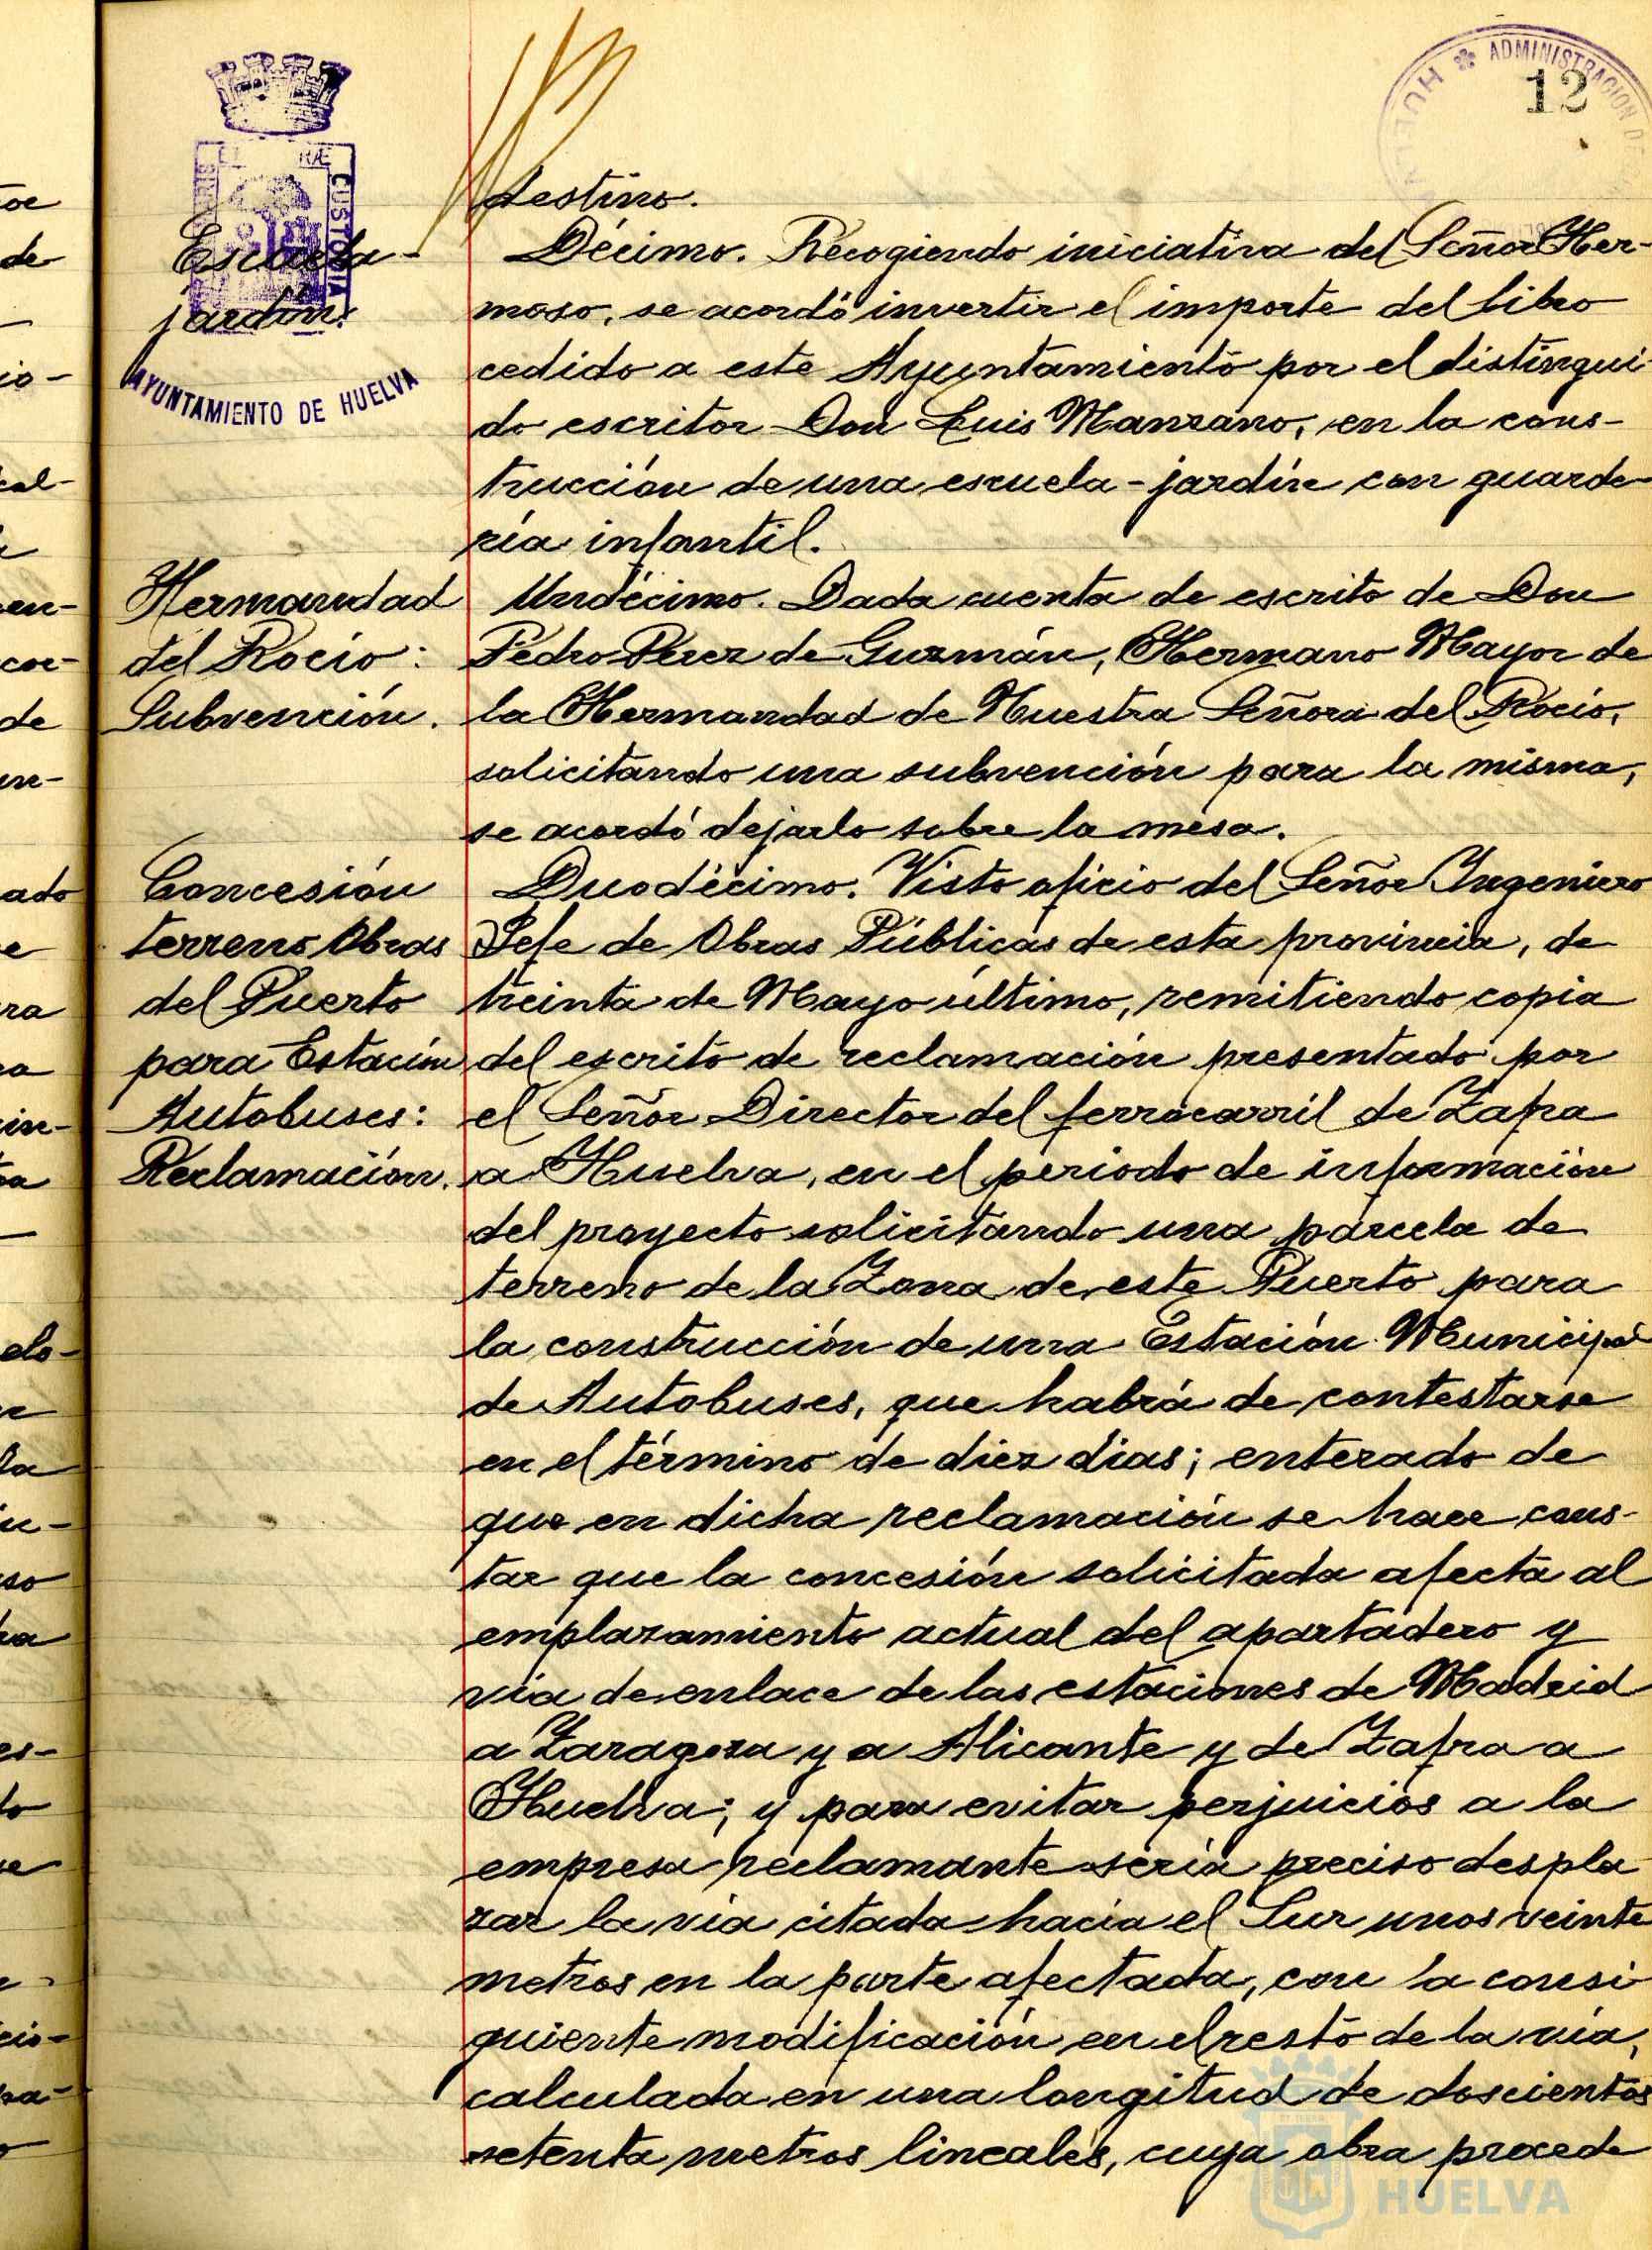 12
HUELVA * ADMINISTRACION DE
CUSTODIA
AYUNTAMIENTO DE HUELVA
Escuela-
jardín:
destino.
Décimo. Recogiendo iniciativa del Señor Her-
moso, se acordó invertir el importe del libro
cedido a este Ayuntamiento por el distingui
do escritor Don Luis Manzano, en la cons-
trucción de una escuela-jardín con guarde-
ría infantil.
Hermandad
del Rocio:
Subvención.
Undécimo. Dada cuenta de escrito de Don
Pedro Pérez de Guzmán, Hermano Mayor de
la Hermandad de Nuestra Señora del Rocío,
solicitando una subvención para la misma,
se acordó dejarlo sobre la mesa.
Concesión
terreno Obras
del Puerto
para Estación
Autobuses:
Reclamación.
Duodécimo. Visto oficio del Señor Ingeniero
Jefe de Obras Públicas de esta provincia, de
treinta de Mayo último, remitiendo copia
del escrito de reclamación presentado por
el Señor Director del ferrocarril de Zafra
a Huelva, en el periodo de información
del proyecto solicitando una parcela de
terreno de la Zona de este Puerto para
la construcción de una Estación Municipal
de Autobuses, que habrá de contestarse
en el término de diez dias; enterado de
que en dicha reclamación se hace cons-
tar que la concesión solicitada afecta al
emplazamiento actual del apartadero y
vía de enlace de las estaciones de Madrid
a Zaragoza y a Alicante y de Zafra a
Huelva; y para evitar perjuicios a la
empresa reclamante sería preciso despla
zar la vía citada hacia el Sur unos veinte
metros en la parte afectada, con la consi
guiente modificación en el resto de la vía,
calculada en una longitud de doscientos
setenta metros lineales, cuya obra procede
HUELVA